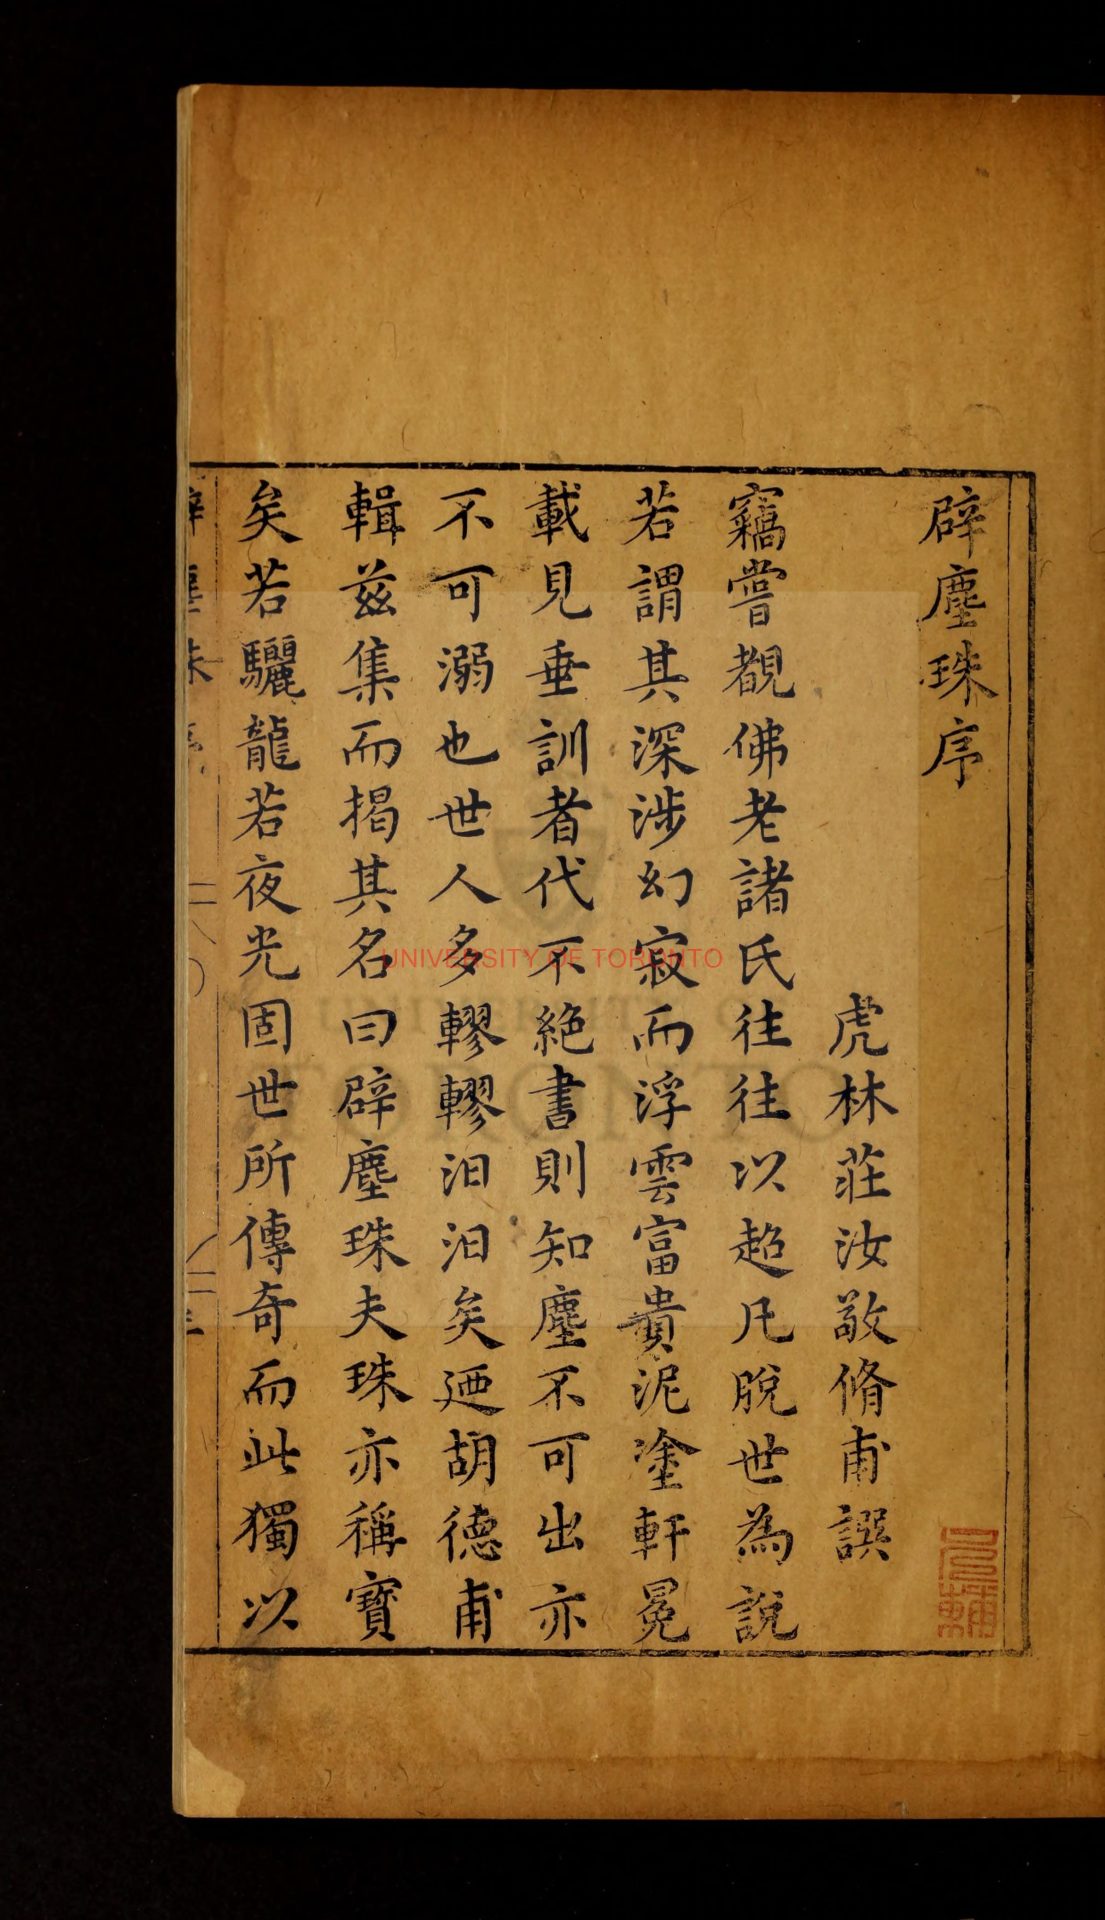 辟塵珠序
虎林莊汝敬脩甫譔
竊嘗覩佛老諸氏往往以超凡脫世為說
若謂其深涉幻寂而浮雲富貴泥塗軒冕
載見垂訓者代不絕書則知塵不可出亦
不可溺也世人多轇轇汩汩矣迺胡德甫
輯茲集而揭其名曰辟塵珠夫珠亦稱寶
矣若驪龍若夜光固世所傳奇而此獨以
UNIVERSITY OF TORONTO